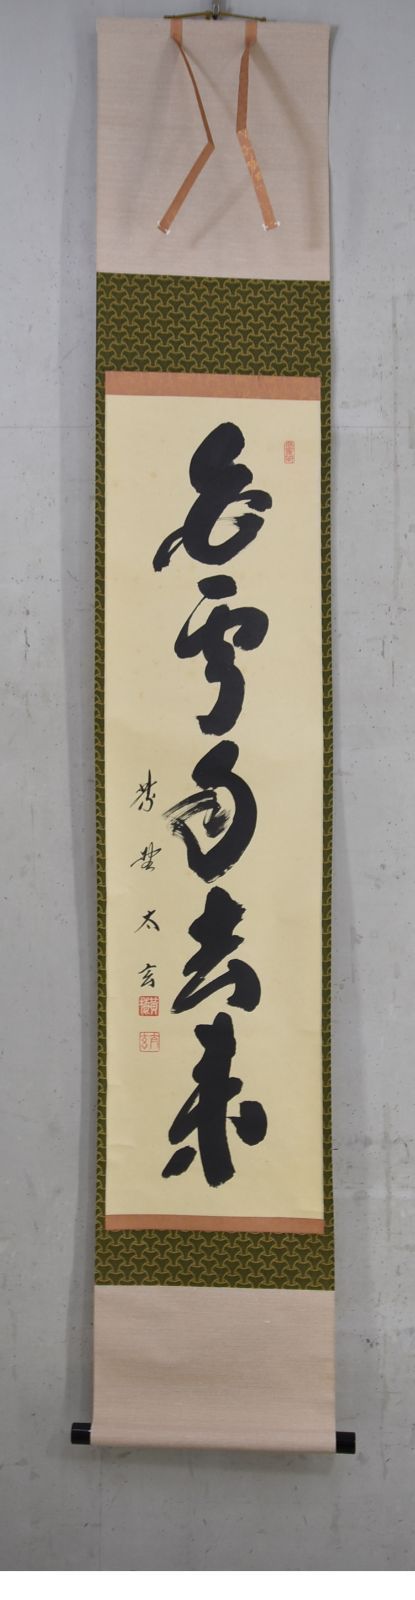 白雲自去来
紫野太玄